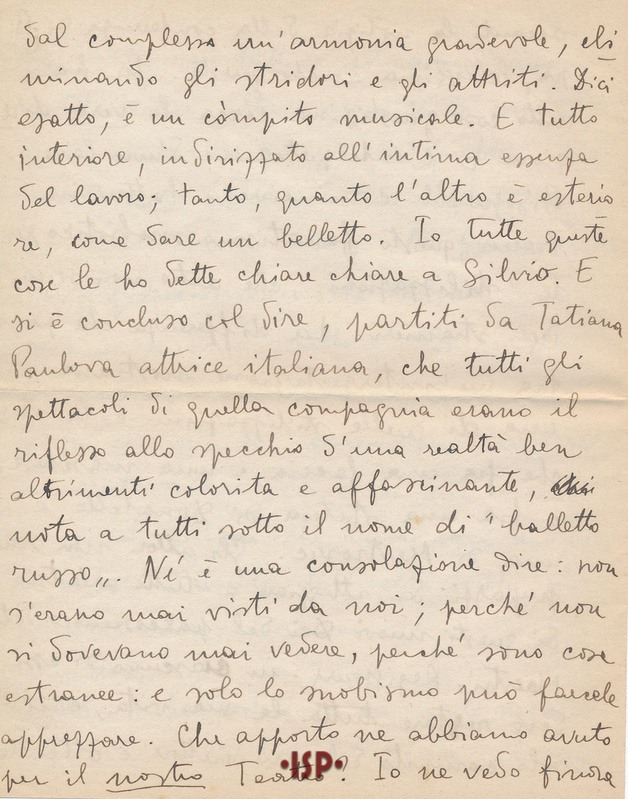 dal complesso un'armonia gradevole, eli
minando gli stridori e gli attriti. Dici
esatto, è un còmpito musicale. E tutto
interiore, indirizzato all'intima essenza
del lavoro; tanto, quanto l'altro è esterio
re, come dare un belletto. Io tutte queste
cose le ho dette chiare chiare a Silvio. E
si è concluso col dire, partiti da Tatiana
Paulova attrice italiana, che tutti gli
spettacoli di quella compagnia erano il
riflesso allo specchio d'una realtà ben
altrimenti colorita e affascinante,
nota a tutti sotto il nome di "balletto
russo„. Né è una consolazione dire: non
s'erano mai visti da noi; perché non
si dovevano mai vedere, perché sono cose
estranee: e solo lo snobismo può farcele
apprezzare. Che apporto ne abbiamo avuto
per il nostro Teatro? Io ne vedo finora
•ISP•